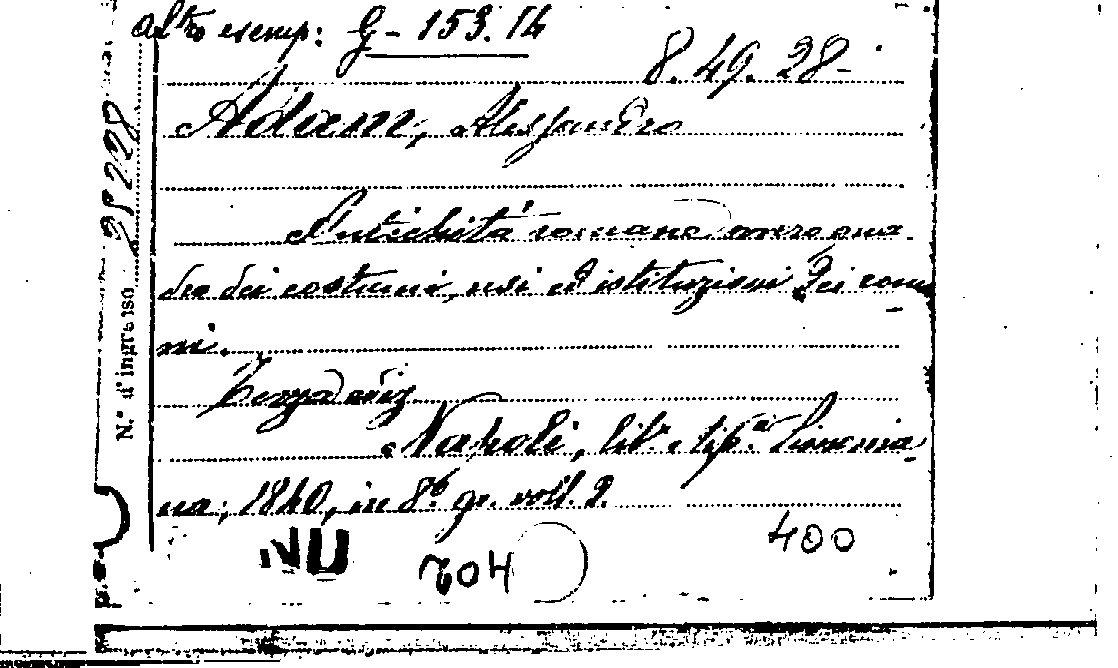 altro esemp: G - 153. 14
8. 49. 28-
Adam, Alessandro
Antichità romane ovvero qua-
dro dei costumi, usi ed istituzioni dei roma-
ni.
Terza ediz
Napoli, lit.a e tip.a Simonia-
na, 1840, in 8.° gr. voll. 2.
400
704
N.° d'ingresso